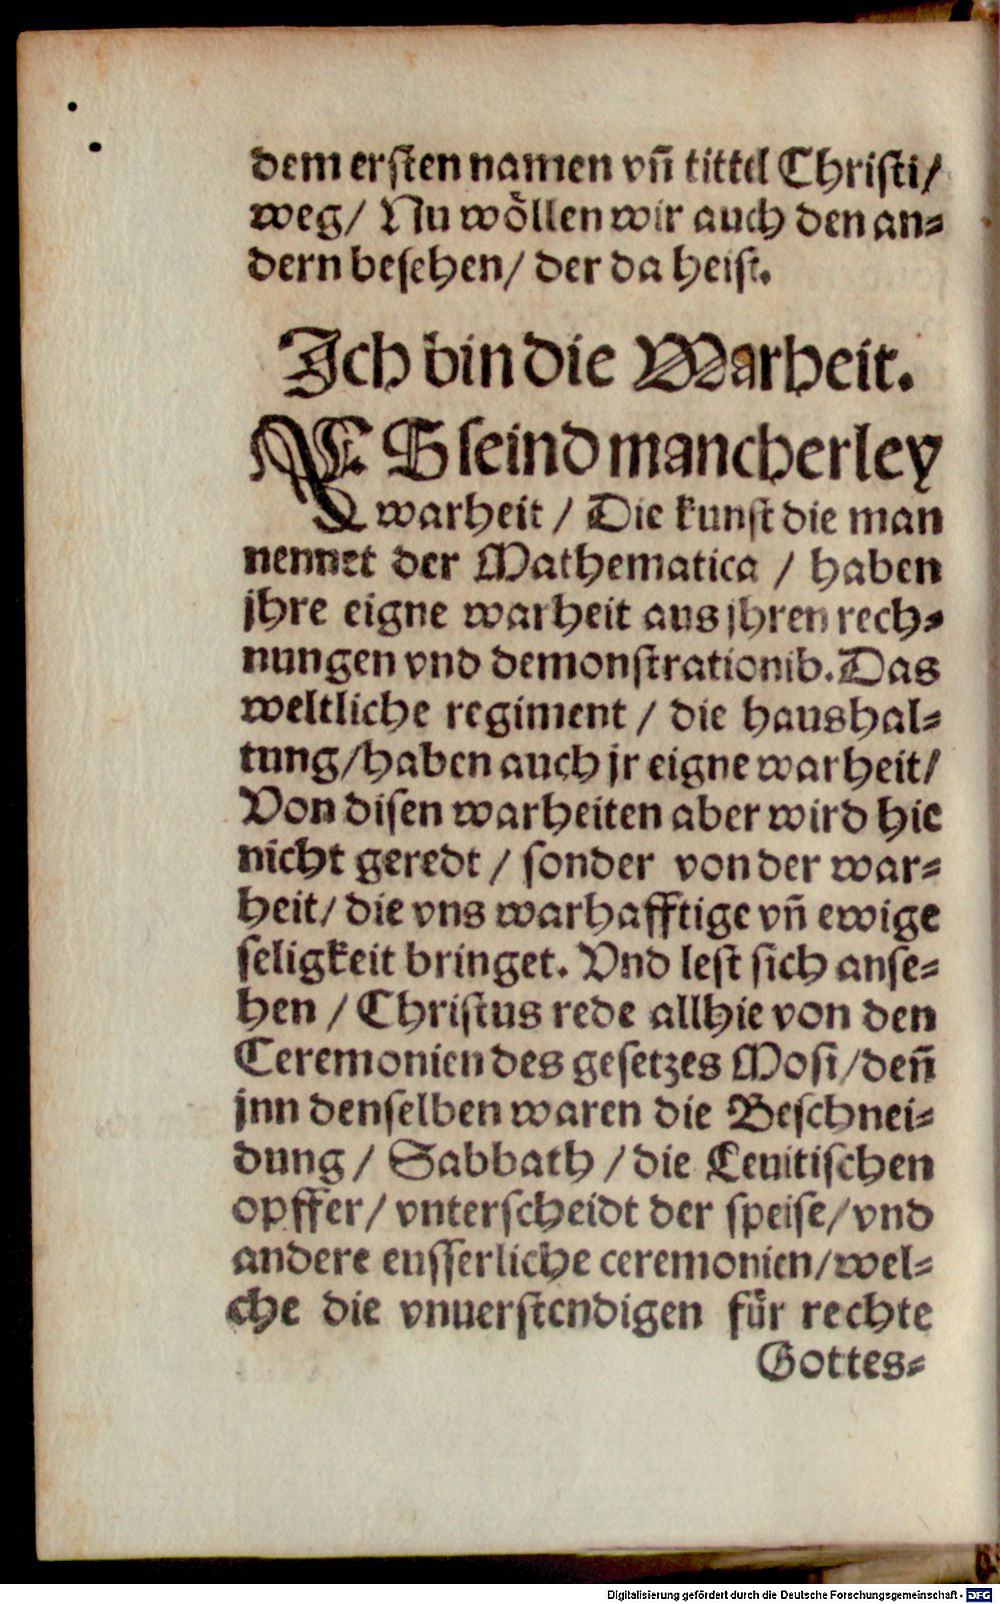 dem ersten namen vn̄ tittel Christi/
weg/ Nu woͤllen wir auch den an⸗
dern besehen/ der da heist.
Ich bin die Warheit.
ES seind mancherley
warheit / Die kunst die man
nennet der Mathematica / haben
jhre eigne warheit aus jhren rech⸗
nungen vnd demonstrationib. Das
weltliche regiment / die haushal⸗
tung/haben auch jr eigne warheit/
Von disen warheiten aber wird hie
nicht geredt / sonder von der war⸗
heit/ die vns warhafftige vn̄ ewige
seligkeit bringet. Vnd lest sich anse⸗
hen / Christus rede allhie von den
Ceremonien des gesetzes Mosi/den̄
jnn denselben waren die Beschnei⸗
dung / Sabbath / die Leuitischen
opffer/ vnterscheidt der speise/vnd
andere eusserliche ceremonien/wel⸗
che die vnuerstendigen fuͤr rechte
Gottes⸗
Digitalisierung gefördert durch die Deutsche Forschungsgemeinschaft - DFG